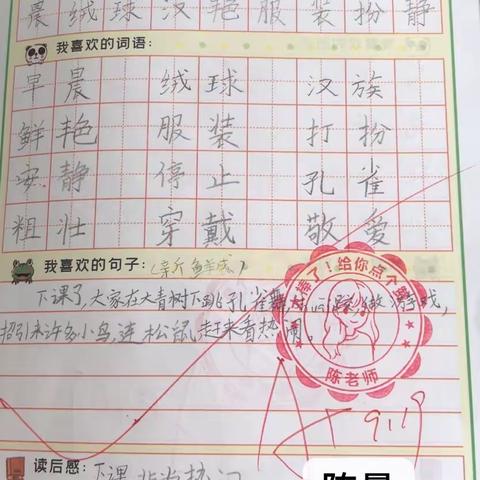 晨 绒 球 汉 艳 服 装 扮 静
我喜欢的词语:
早晨 绒球 汉族
鲜艳 服装 打扮
安静 停止 孔雀
粗壮 穿戴 敬爱
我喜欢的句子:(新鲜感)
下课了,大家在大青树下跳孔雀舞、做游戏,
招引来许多小鸟,连松鼠赶来看热闹。
太棒了!给你点个赞
陈老师
9.19
读后感:下课